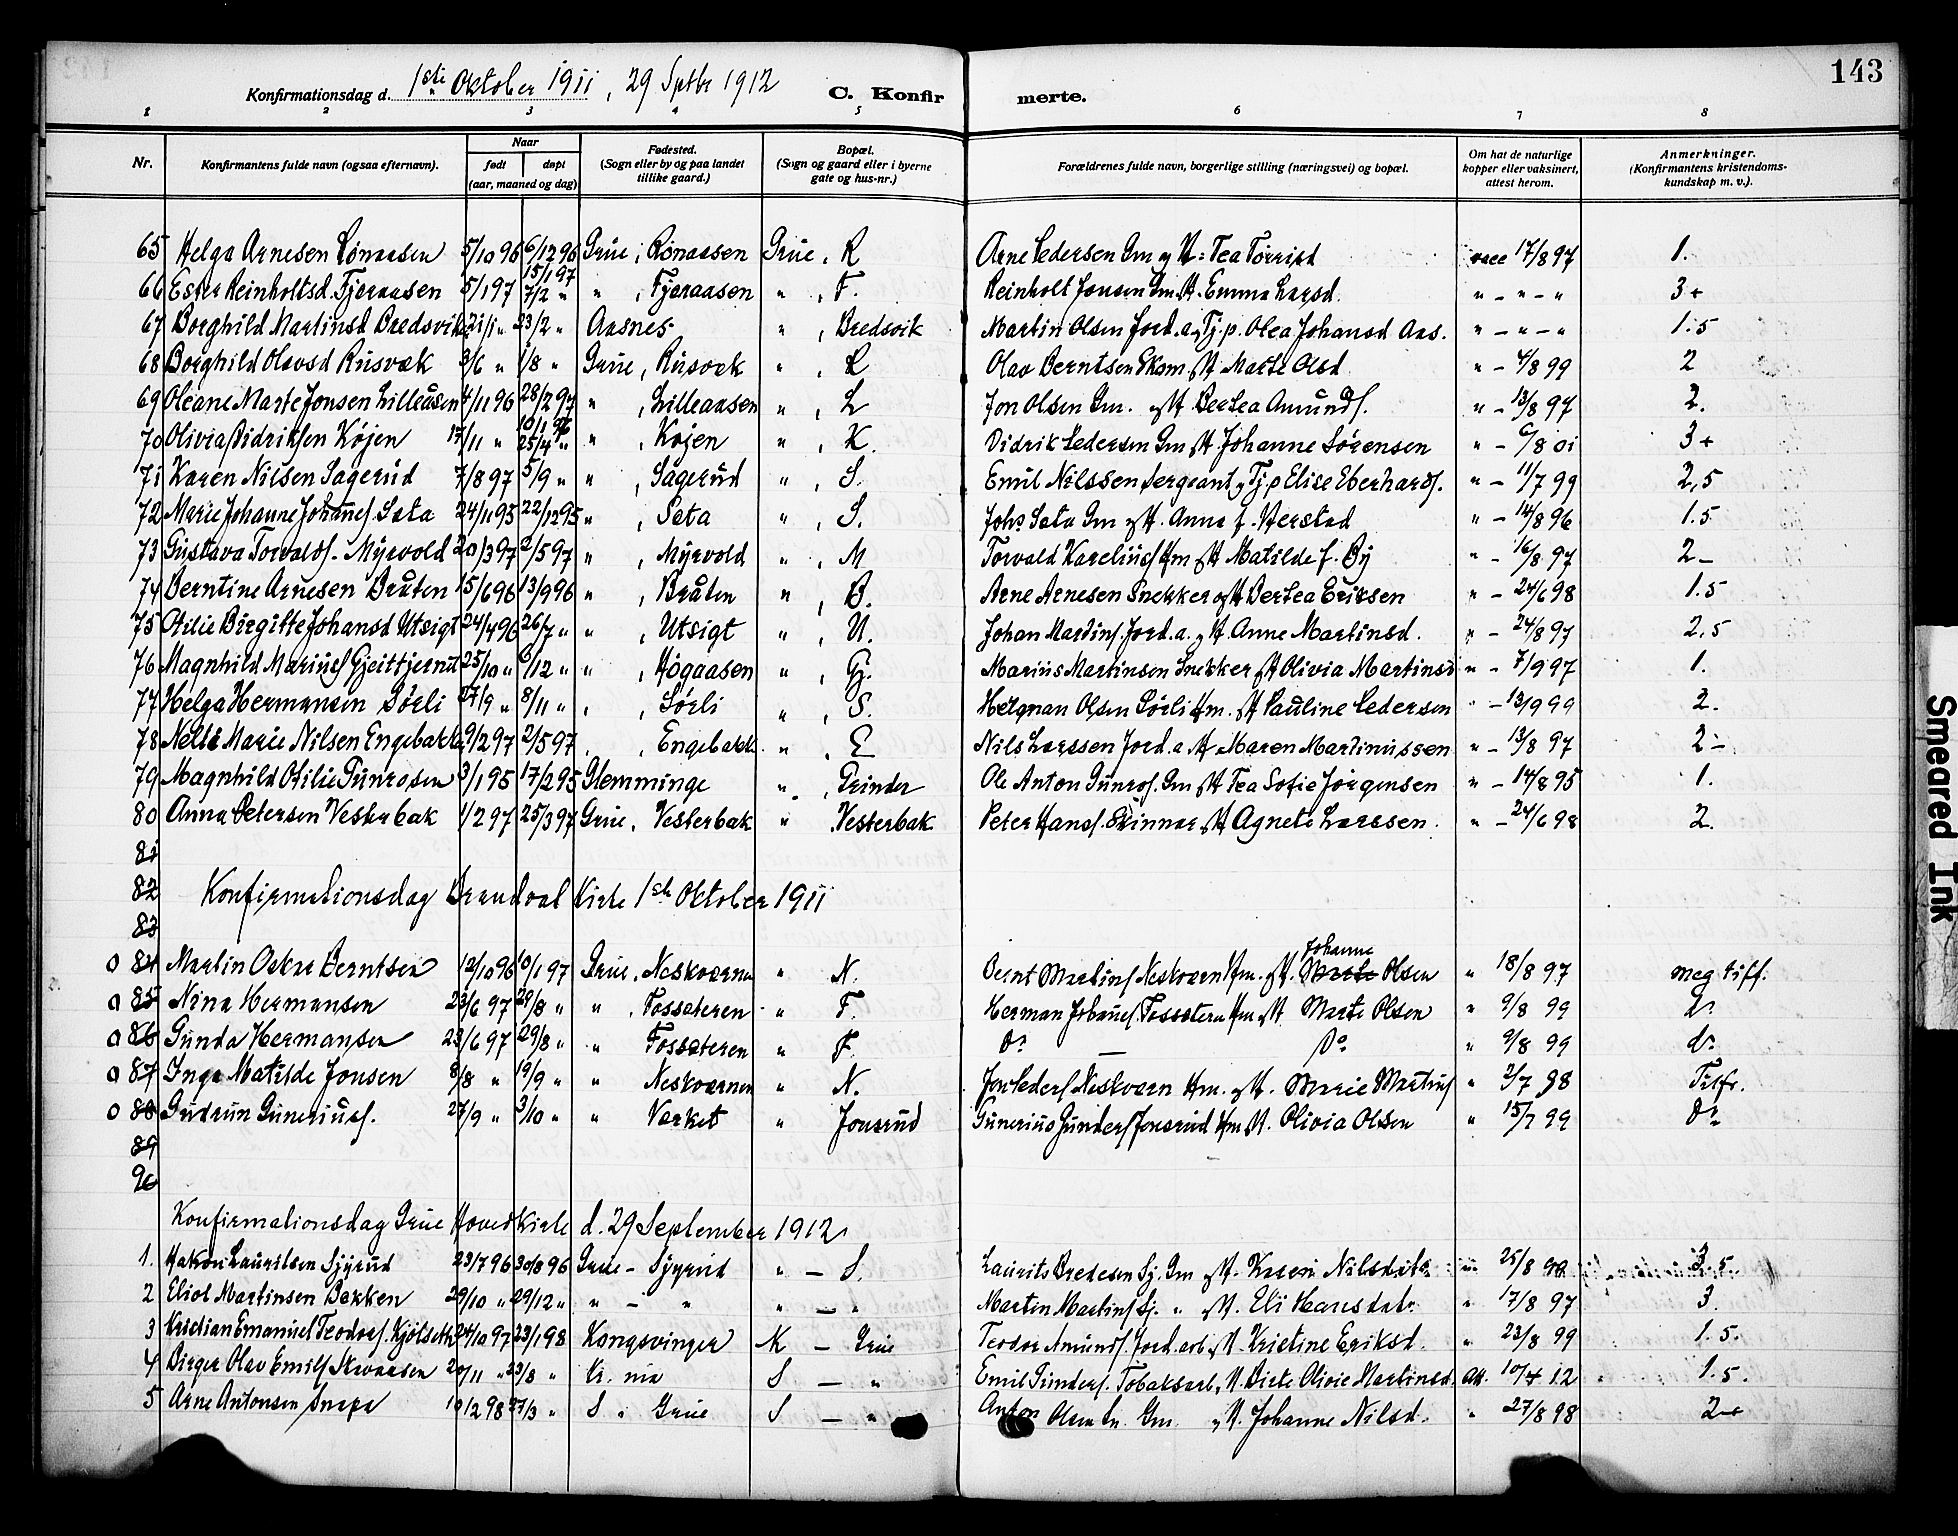 143
Konfirmationsdag d. 1ste Oktober 1911, 29 Sptbr 1912 C. Konfirmerte.
1 2 3 4 5 6 7 8
Nr. Konfirmantens fulde navn (ogsaa efternavn). Naar født døpt (aar, maaned og dag) Fødested. (Sogn eller by og paa landet tillike gaard.) Bopæl. (Sogn og gaard eller i byerne gate og hus-nr.) Forældrenes fulde navn, borgerlige stilling (næringsvei) og bopæl. Om hat de naturlige kopper eller vaksinert, attest herom. Anmerkninger. (Konfirmantens kristendoms-kundskap m. v.).
65 Helga Arnesen Rønaasen 5/10 96 6/12 96 Grue, Rønaasen Grue, R Arne Pedersen Gm og H: Tea Torrisd vacc 17/8 97 1.
66 Ester Reinholtsd. Fjeraasen 5/1 97 15/1 97 7/2 " " , Fjeraasen " , F. Reinholt Jonsen Gm. H. Emma Larsd. " - " - " 3+
67 Borghild Martinsd Bredsvik 21/1 " 23/2 " Aasnes " , Bredsvik Martin Olsen Jord.a. Tj.p. Olea Johansd Aas. " - " - " 1.5
68 Borghild Olavsd Rusvæk 3/6 " 1/8 " Grue, Rusvæk " , R Olav Berntsen Skom. H Marte Olsd " - 4/8 99 2
69 Oleane Marte Jonsen Lilleåsen 4/11 96 28/2 97 " , Lilleaasen " , L Jon Olsen Gm. og H Bertea Amunds. " - 13/8 97 2.
70 Olivia Didriksen Køjen 17/11 " 10/1 97 25/4 " " , Køjen " , K. Didrik Pedersen Gm H Johanne Sørensen " - 6/8 01 3+
71 Karen Nilsen Sagerud 7/8 97 5/9 " " , Sagerud " , S. Emil Nilssen Sergeant, Tj.p Elise Eberhards. " - 11/7 99 2,5
72 Marie Johanne Johannes. Sæta 24/11 95 22/12 95 " , Sæta " , S. Johs Sæta Gm og H. Anna f. Herstad " - 14/8 96 1.5
73 Gustava Torvalds. Myrvold 20/3 97 2/5 97 " , Myrvold " , M Torvald Karelius Hm H Matilde f. By " - 16/8 97 2-
74 Berntine Arnesen Bråten 15/6 96 13/9 96 " , Bråten " , B. Arne Arnesen Snekker og H Bertea Eriksen " - 24/6 98 1.5
75 Otilie Birgitte Johansd Utsigt 24/4 96 26/7 " " , Utsigt " , U. Johan Martins. Jord.a. og H. Anne Martinsd. " - 24/8 97 2,5
76 Magnhild Marius Gjeittjernut 25/10 " 6/12 " " , Høgaasen " , Gj. Marius Martinsen Snekker H Olivia Martinsd " - 7/9 97 1.
77 Helga Hermansen Sørli 17/9 " 8/11 " , , Sørli " , S. Hermann Olsen Sørli Hm. H Pauline Pedersen " - 13/9 99 2.
78 Nelli Marie Nilsen Engebakk 9/2 97 2/5 97 , , Engebakk " , E Nils Larssen Jord.a H Maren Martinussen " - 13/8 97 2-
79 Magnhild Otilie Gunrosen 3/1 95 17/2 95 Glemminge " , Grinder Ole Anton Gunros. Gm H Tea Sofie Jørgensen " - 14/8 95 1.
80 Anna Petersen Vesterbak 1/2 97 25/3 97 Grue, Vesterbak " Vesterbak Peter Hans. Skinnar H Agnete Larssen. " - 24/6 98 2.
81
82 Konfirmationsdag Brandval Kirke 1ste Oktober 1911
83
o 84 Martin Oskar Berntsen 12/10 96 10/1 97 Grue, Neskværnen " N. Bernt Martins Neskværn Hm. H. Johanne Marte Olsen " 18/8 97 meg tilf.
o 85 Nina Hermansen 23/6 97 29/8 " " , Fossæteren " F. Herman Johannes. Fossætern Hm. H Marte Olsen " 9/8 99 do
o 86 Gunda Hermansen 23/6 97 29/8 " " Fossæteren " F. Do — Do " 9/8 99 do
o 87 Inga Matilde Jonsen 8/8 " 19/9 " " Neskværnen " N. Jon Peders Neskværn Hm. H. Marie Martins " 2/7 98 Tilfr.
o 88 Gudrun Gunerius. 27/9 " 3/10 " " Verket " Jonsrud Gunerius Gunders Jonsrud Hm H. Olivia Olsen " 15/7 99 Do
89
90
Konfirmationsdag Grue Hovedkirke d. 29 September 1912
1. Hakon Lauritsen Sjyrud 23/7 96 30/8 96 Grue - Sjyrud " - S. Laurits Bredesen Sj. Gm H. Karen Nilsdatr " 25/8 3.5
2 Eliot Martinsen Bakken 29/10 " 29/12 " " - " " - " Martin Martins Sj. " H. Eli Hansdatr " 17/8 97 3.
3 Kristian Emanuel Teodors. Kjölseth 24/10 97 23/1 98 Kongsvinger K - Grue Teodor Amunds. Jord.arb. H. Kristine Eriksd. " 23/8 99 1.5.
4 Birger Olav Emils 20/11 " 23/8 " Kr.nia S - " Emil Gunders. Tobaksarb. H. Birte Olivie Martinsd. Att. 10/4 12 1.5.
5 Arne Antonsen Snapa 10/2 98 27/3 " S " Grue S - " Anton Olsen Sn. Gm. H. Johanne Nilsd. " 27/8 98 2+
Smeared Ink